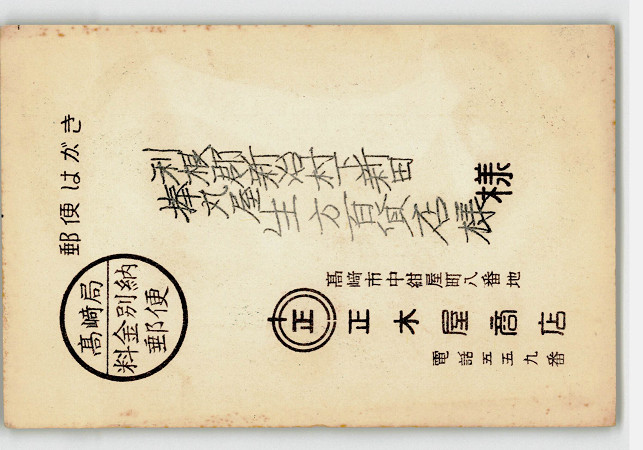 郵便はがき
高崎局
料金別納
郵便
利根郡新治村下新田
屋生方百貨店様
様
高崎市中紺屋町八番地
正
正木屋商店
電話五五九番